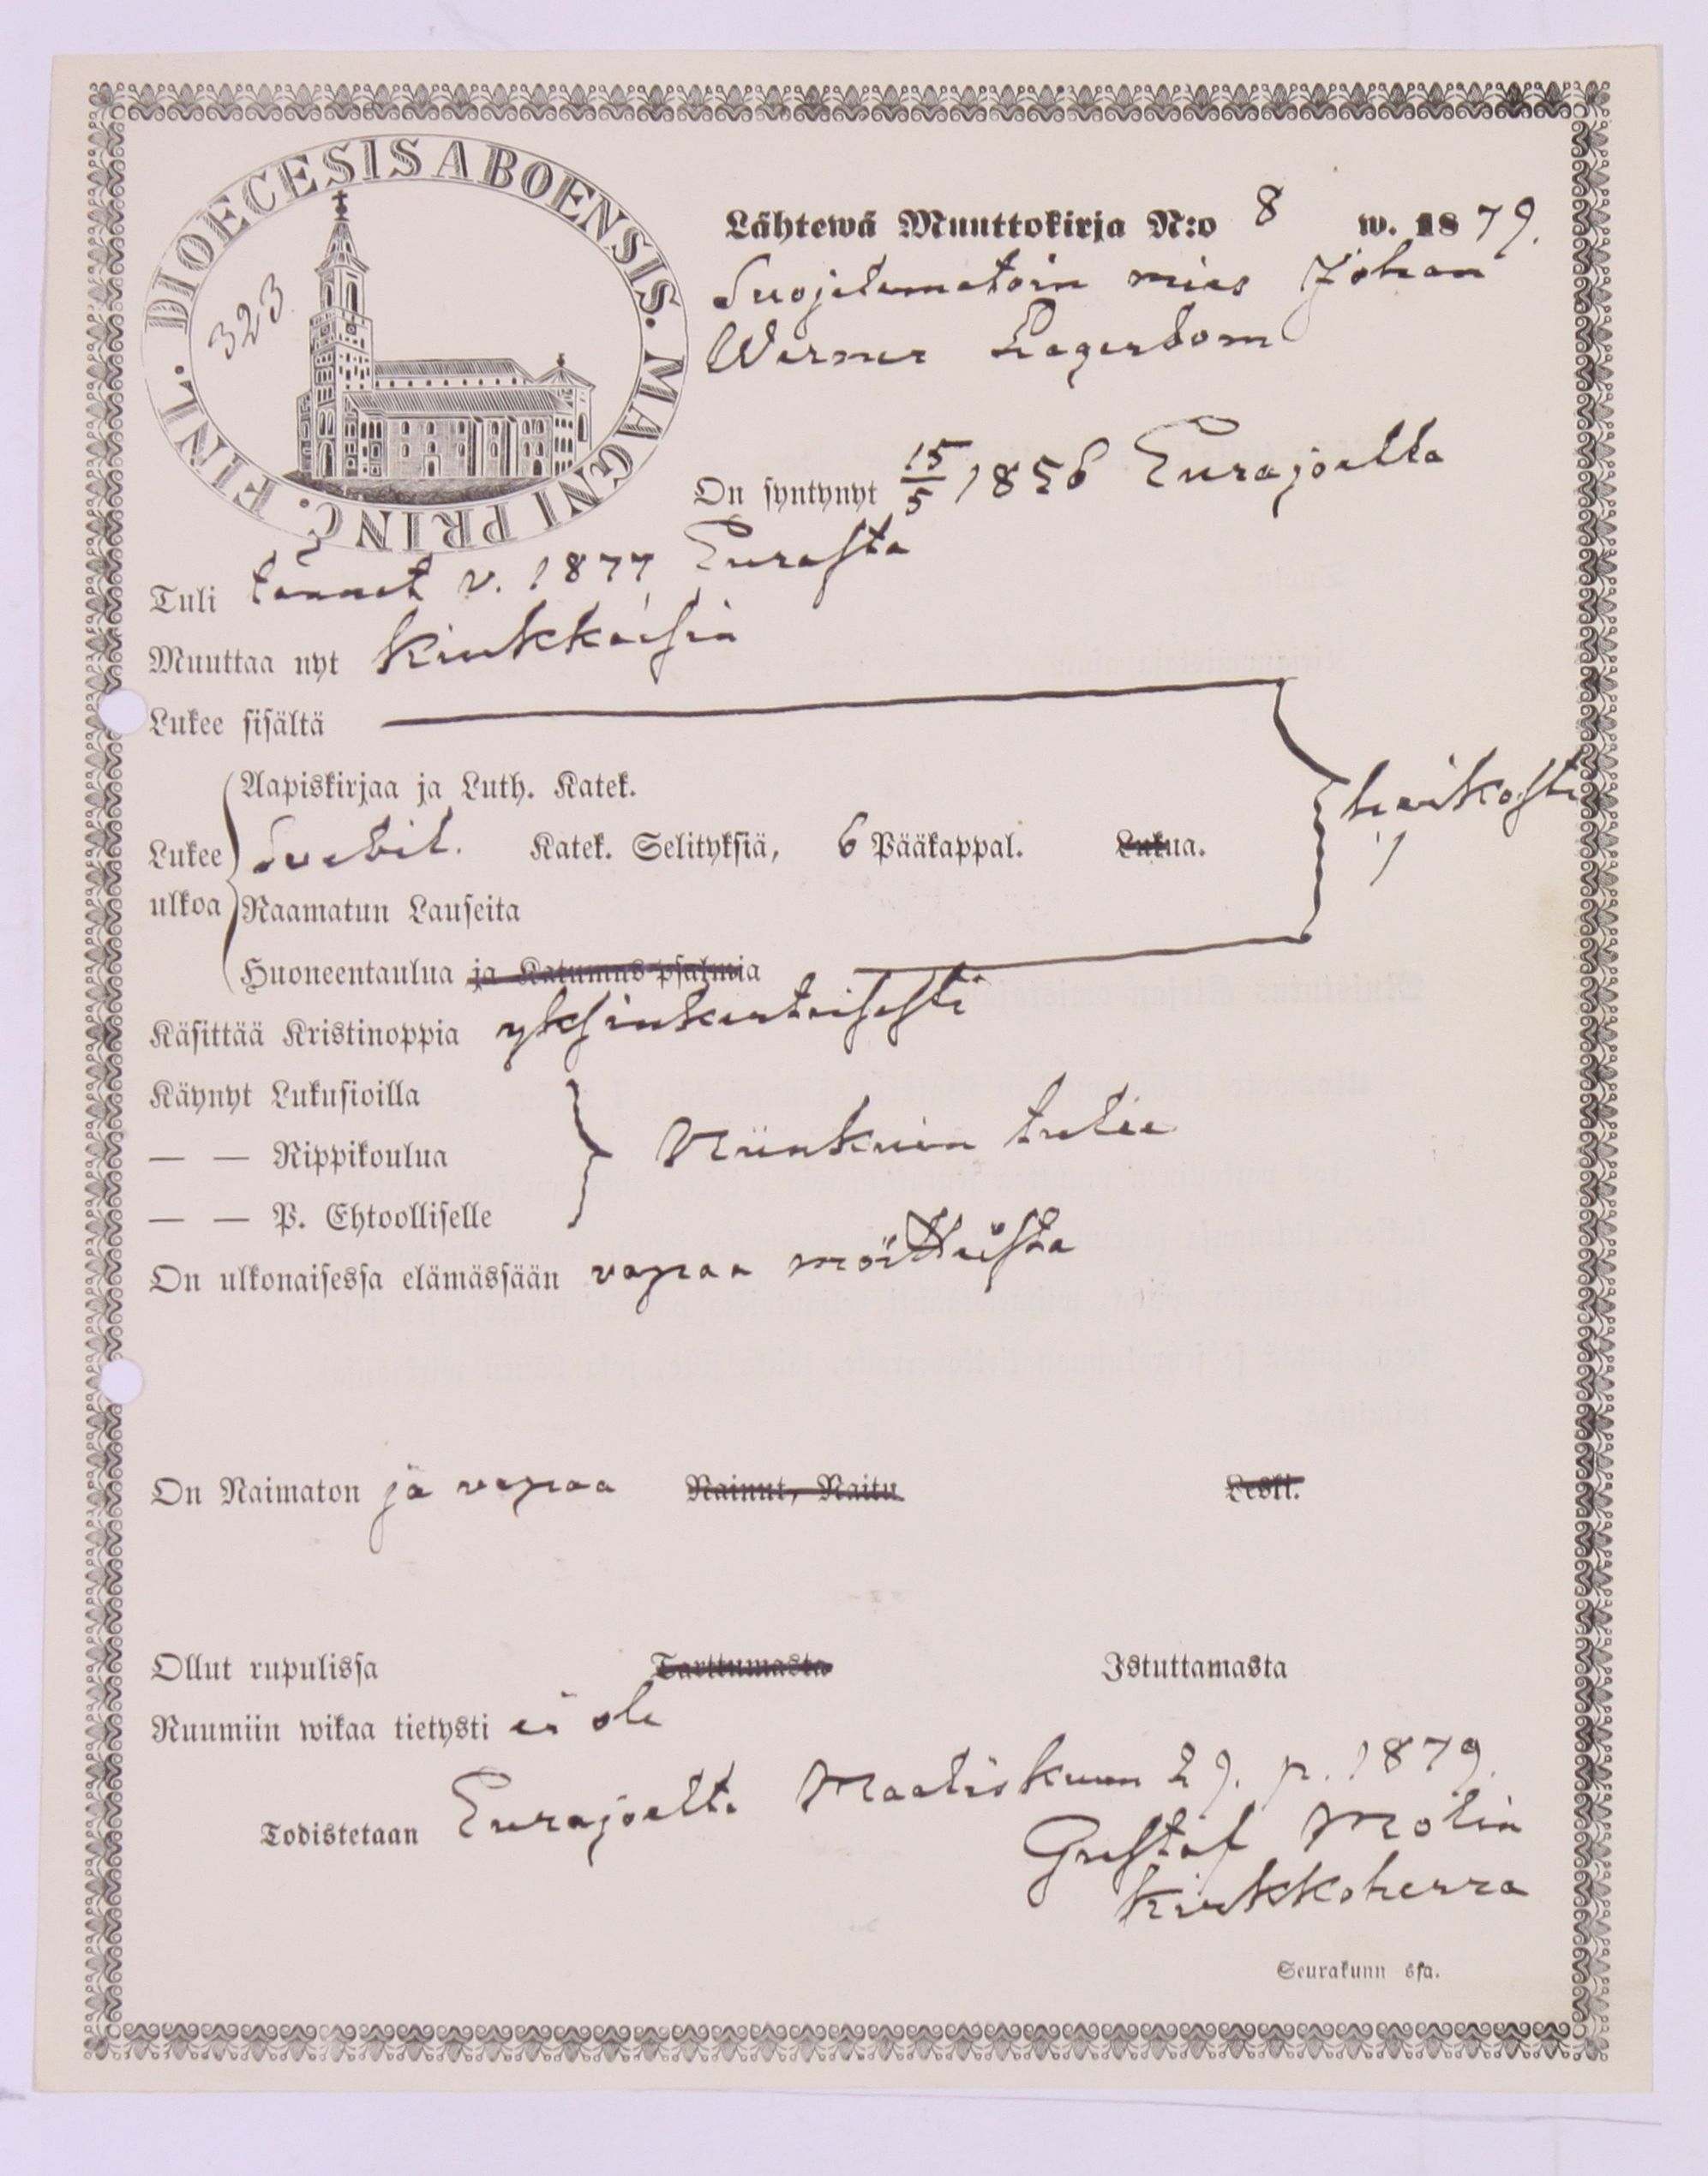 DIOECESIS ABOENSIS. MAGNI PRINC. FINL.
323.
Lähtewä Muuttokirja N:o 8 w. 1879.
Suojelematoin mies Johan
Werner Lagerbom
On syntynyt 15/5 1856 Eurajoella
Tuli tännet v. 1877 Eurasta
Muuttaa nyt Kiukkaisiin
Lukee sisältä
Aapiskirjaa ja Luth. Katek.
Lukee ulkoa Svebil. Katek. Selityksiä, 6 Pääkappal. Lukua. heikosti
Raamatun Lauseita
Huoneentaulua ja Katumus-psalmia
Käsittää Kristinoppia yksinkertaisesti
Käynyt Lukusioilla
— — Rippikoulua Niinkuin tulee
— — P. Ehtoolliselle
On ulkonaisessa elämässään vapaa moitteista
On Naimaton ja vapaa Nainut, Naitu Leski.
Ollut rupulissa Tarttumasta Istuttamasta
Ruumiin wikaa tietysti ei ole
Todistetaan Eurajoelta Maaliskuun 29. p. 1879.
Gustaf Molin
Kirkkoherra
Seurakunn ssa.